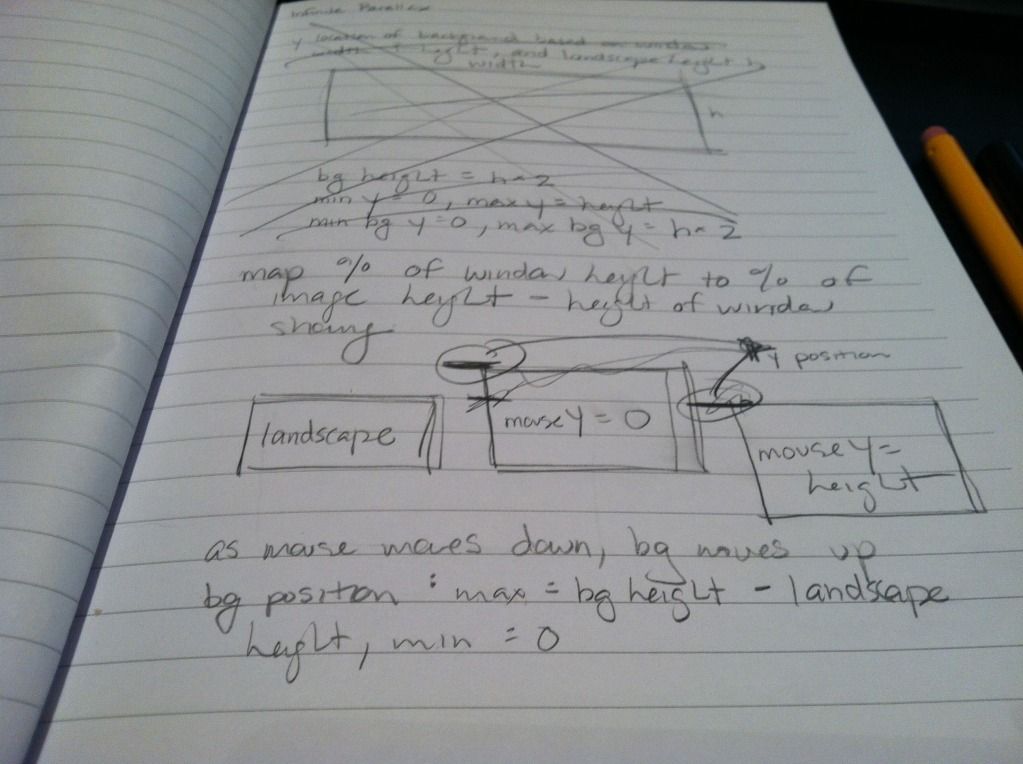 Infinite Parallax
y location of background based on window
width + height, and landscape height h
width
h
bg height = h * 2
min y = 0, max y = height
min bg y = 0, max bg y = h * 2
map % of window height to % of
image height - height of window
showing
y position
landscape
mouse Y = 0
mouse Y =
height
as mouse moves down, bg moves up
bg position : max = bg height - landscape
height, min = 0